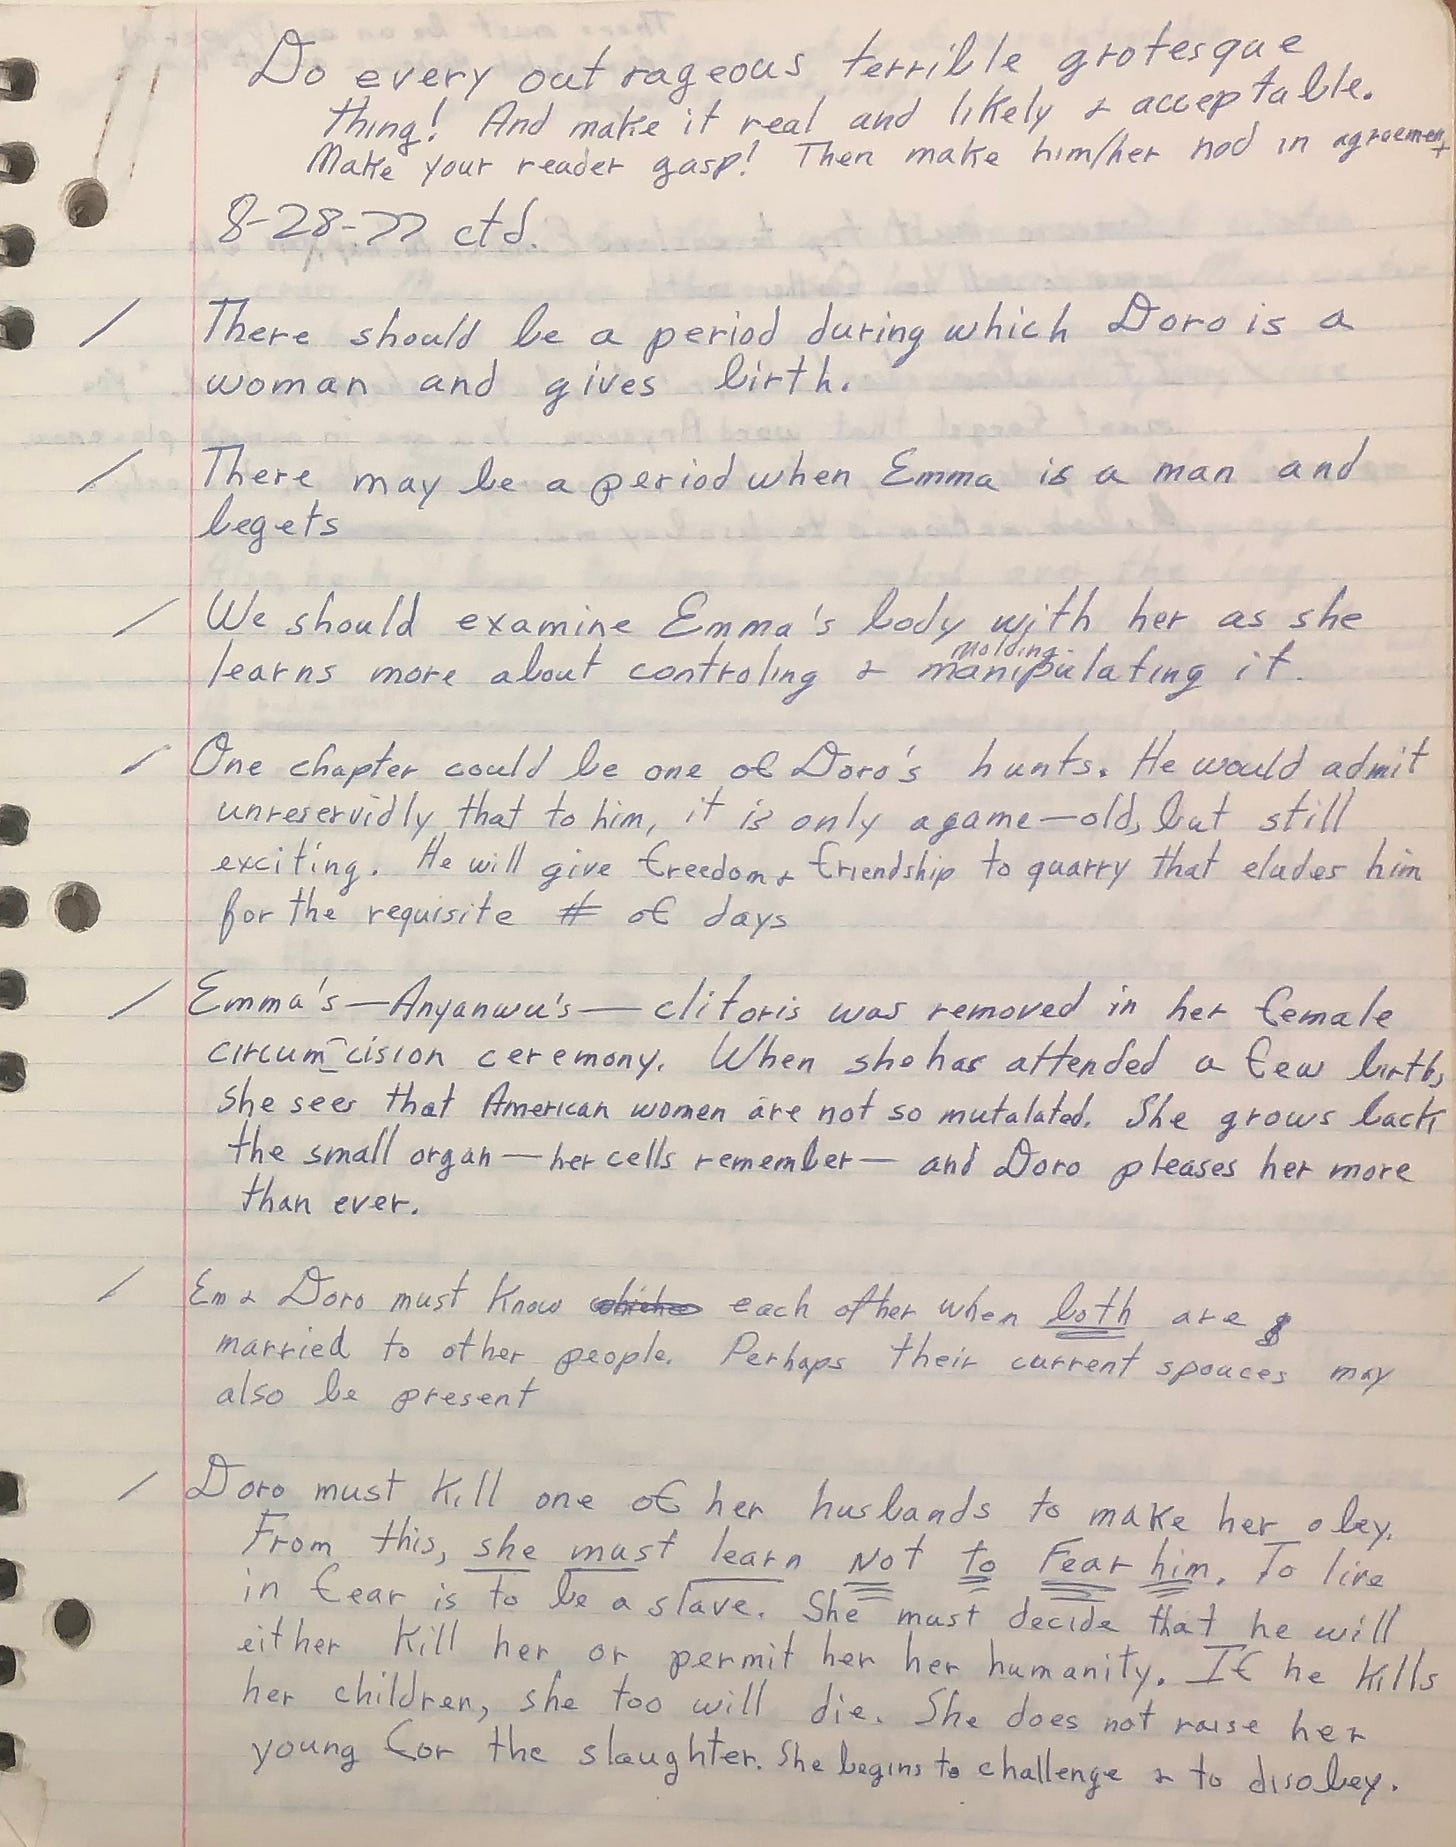 Do every outrageous terrible grotesque
thing! And make it real and likely & acceptable.
Make your reader gasp! Then make him/her nod in agreement
8-28-77 ctd.
/ There should be a period during which Doro is a
woman and gives birth.
/ There may be a period when Emma is a man and
begets
/ We should examine Emma's body with her as she
molding
learns more about controling & manipulating it.
/ One chapter could be one of Doro's hunts. He would admit
unreservidly that to him, it is only a game—old, but still
exciting. He will give freedom & friendship to quarry that eludes him
for the requisite # of days
/ Emma's—Anyanwu's—clitoris was removed in her female
circum-cision ceremony. When she has attended a few births,
she sees that American women are not so mutalated. She grows back
the small organ—her cells remember—and Doro pleases her more
than ever.
/ Em & Doro must know each other when both are
married to other people. Perhaps their current spouces may
also be present
/ Doro must kill one of her husbands to make her obey.
From this, she must learn Not to Fear him. To live
in fear is to be a slave. She must decide that he will
either kill her or permit her her humanity. If he kills
her children, she too will die. She does not raise her
young for the slaughter. She begins to challenge & to disobey.